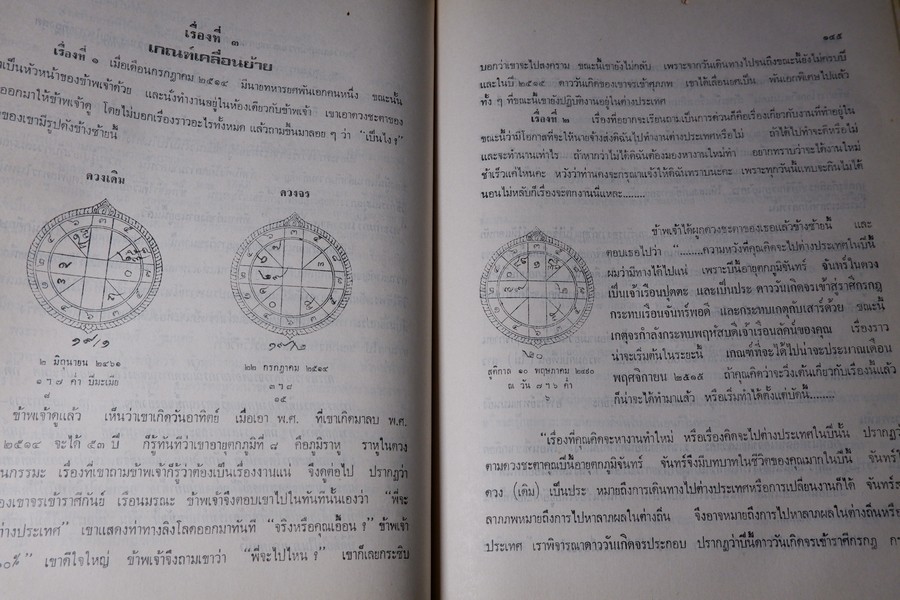 เรื่องที่ ๓
เกณฑ์เคลื่อนย้าย
เรื่องที่ ๑ เมื่อเดือนกรกฎาคม ๒๕๑๔ มีนายทหารยศพันเอกคนหนึ่ง ขณะนั้น
เป็นหัวหน้าของข้าพเจ้าด้วย และนั่งทำงานอยู่ในห้องเดียวกับข้าพเจ้า เขาเอาดวงชะตาของ
ออกมาให้ข้าพเจ้าดู โดยไม่บอกเรื่องราวอะไรทั้งหมด แล้วถามขึ้นมาลอย ๆ ว่า “เป็นไง ?”
ของเขามีรูปดังข้างซ้ายนี้
ดวงเดิม
ดวงจร
๒ มิถุนายน ๒๔๖๑
๑ ฯ ๗ ค่ำ ปีมะเมีย
๘
๒๒ กรกฎาคม ๒๕๑๔
๓ ฯ ๘
๑๕
ข้าพเจ้าดูแล้ว เห็นว่าเขาเกิดวันอาทิตย์ เมื่อเอา พ.ศ. ที่เขาเกิดมาลบ พ.ศ.
๒๕๑๔ จะได้ ๕๓ ปี ก็รู้ทันทีว่าเขาอายุตกภูมิที่ ๘ คือภูมิราหู ราหูในดวง
นกรรมะ เรื่องที่เขาถามข้าพเจ้าก็รู้ว่าต้องเป็นเรื่องงานแน่ จึงดูต่อไป ปรากฏว่า
ของเขาจรเข้าราศีกันย์ เรือนมรณะ ข้าพเจ้าจึงตอบเขาไปในทันทีนั้นเองว่า “พี่จะ
ต่างประเทศ” เขาแสดงท่าทางลิงโลดออกมาทันที “จริงหรือคุณเอื้อน ?” ข้าพเจ้า
๐๐%” เขาดีใจใหญ่ ข้าพเจ้าจึงถามเขาว่า “พี่จะไปไหน ?” เขาก็เลยกระซิบ
๑๔๕
บอกว่าเขาจะไปสงคราม ขณะนี้เขายังไม่กลับ เพราะจากวันเดินทางไปจนถึงขณะนี้ยังไม่ครบปี
และในปี ๒๕๑๕ ดาววันเกิดของเขาจรเข้าศุภภพ เขาได้เลื่อนยศเป็น พันเอกพิเศษไปแล้ว
ทั้ง ๆ ที่ขณะนี้เขายังปฏิบัติงานอยู่ในต่างประเทศ
เรื่องที่ ๒ เรื่องที่อยากจะเรียนถามเป็นการด่วนก็คือเรื่องเกี่ยวกับงานที่ทำอยู่ใน
ขณะนี้ว่ามีโอกาสที่จะให้นายจ้างส่งดิฉันไปทำงานต่างประเทศหรือไม่ ถ้าได้ไปทำจะดีหรือไม่
และจะทำนานเท่าไร ถ้าหากว่าไม่ได้ดิฉันต้องมองหางานใหม่ทำ อยากทราบว่าจะได้งานใหม่
ช้าเร็วแค่ไหนคะ หวังว่าท่านคงจะกรุณาแจ้งให้ดิฉันทราบนะคะ เพราะทุกวันนี้แทบจะกินไม่ได้
นอนไม่หลับก็เรื่องจะตกงานนี่แหละ........
ข้าพเจ้าได้ผูกดวงชะตาของเธอแล้วข้างซ้ายนี้ และ
ตอบเธอไปว่า “........ความหวังที่คุณคิดจะไปต่างประเทศในปีนี้
ผมว่ามีทางได้ไปแน่ เพราะปีนี้อายุตกภูมิจันทร์ จันทร์ในดวง
เป็นเจ้าเรือนปุตตะ และเป็นประ ดาววันเกิดจรเข้าสู่ราศีกรกฎ
กระทบเรือนจันทร์พอดี และกระทบเกตุกับเสาร์ด้วย ขณะนี้
เกตุจรกำลังกระทบพฤหัสบดีเจ้าเรือนลัคน์ของคุณ เรื่องราว
น่าจะเริ่มต้นในระยะนี้ เกณฑ์ที่จะได้ไปน่าจะประมาณเดือน
พฤศจิกายน ๒๕๑๕ ถ้าคุณคิดว่าจะวิ่งเต้นเกี่ยวกับเรื่องนี้แล้ว
ก็น่าจะได้ทำมาแล้ว หรือเริ่มทำได้ตั้งแต่บัดนี้........
สูติกาล ๑๐ พฤษภาคม ๒๔๙๐
ณ วัน ๗ ฯ ๖ ค่ำ
“เรื่องที่คุณคิดจะหางานทำใหม่ หรือเรื่องคิดจะไปต่างประเทศในปีนั้น ปรากฏ
ตามดวงชะตาคุณปีนี้อายุตกภูมิจันทร์ จันทร์จึงมีบทบาทในชีวิตของคุณมากในปีนี้ จันทร์ใ
ดวง (เดิม) เป็นประ หมายถึงการเดินทางไปต่างประเทศหรือการเปลี่ยนงานก็ได้ จันทร์
ลาภภพหมายถึงการไปหาลาภผลในต่างถิ่น จึงอาจหมายถึงการไปหาลาภผลในต่างถิ่นหรือ
ประเทศ เราพิจารณาดาววันเกิดจรประกอบ ปรากฏว่าปีนี้ดาววันเกิดจรเข้าราศีกรกฎ